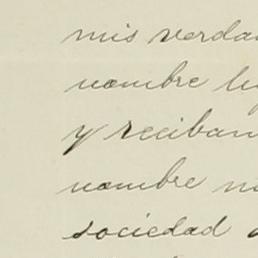 mis verda
nombre
y reciban
nombre
sociedad